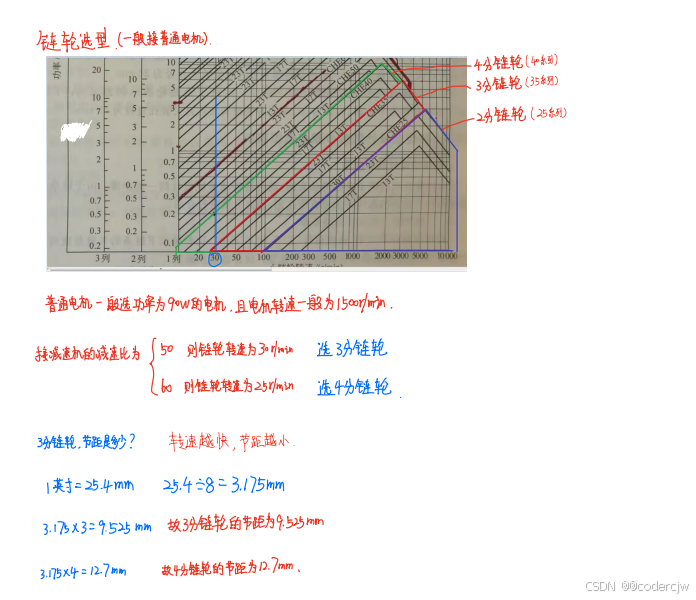 链轮选型.(一般接普通电机).
功率
20
10
7
5
3
2
1
0.7
0.5
0.3
0.2
3列
10
7
5
3
2
1
0.7
0.5
0.3
0.2
0.1
2列
10
7
5
3
2
1
0.7
0.5
0.3
0.2
0.1
1列 20 30 50 100 200 300 500 1000 2000 3000 5000 10000
4分链轮(40系列)
3分链轮(35系列)
2分链轮(25系列)
普通电机一般选功率为90W的电机,且电机转速一般为1500r/min.
接减速机的减速比为
50 则链轮转速为30r/min 选3分链轮
60 则链轮转速为25r/min 选4分链轮.
3分链轮,节距是多少? 转速越快,节距越小.
1英寸=25.4mm 25.4÷8=3.175mm
3.175×3=9.525mm 故3分链轮的节距为9.525mm
3.175×4=12.7mm 故4分链轮的节距为12.7mm.
CSDN @@codercjw